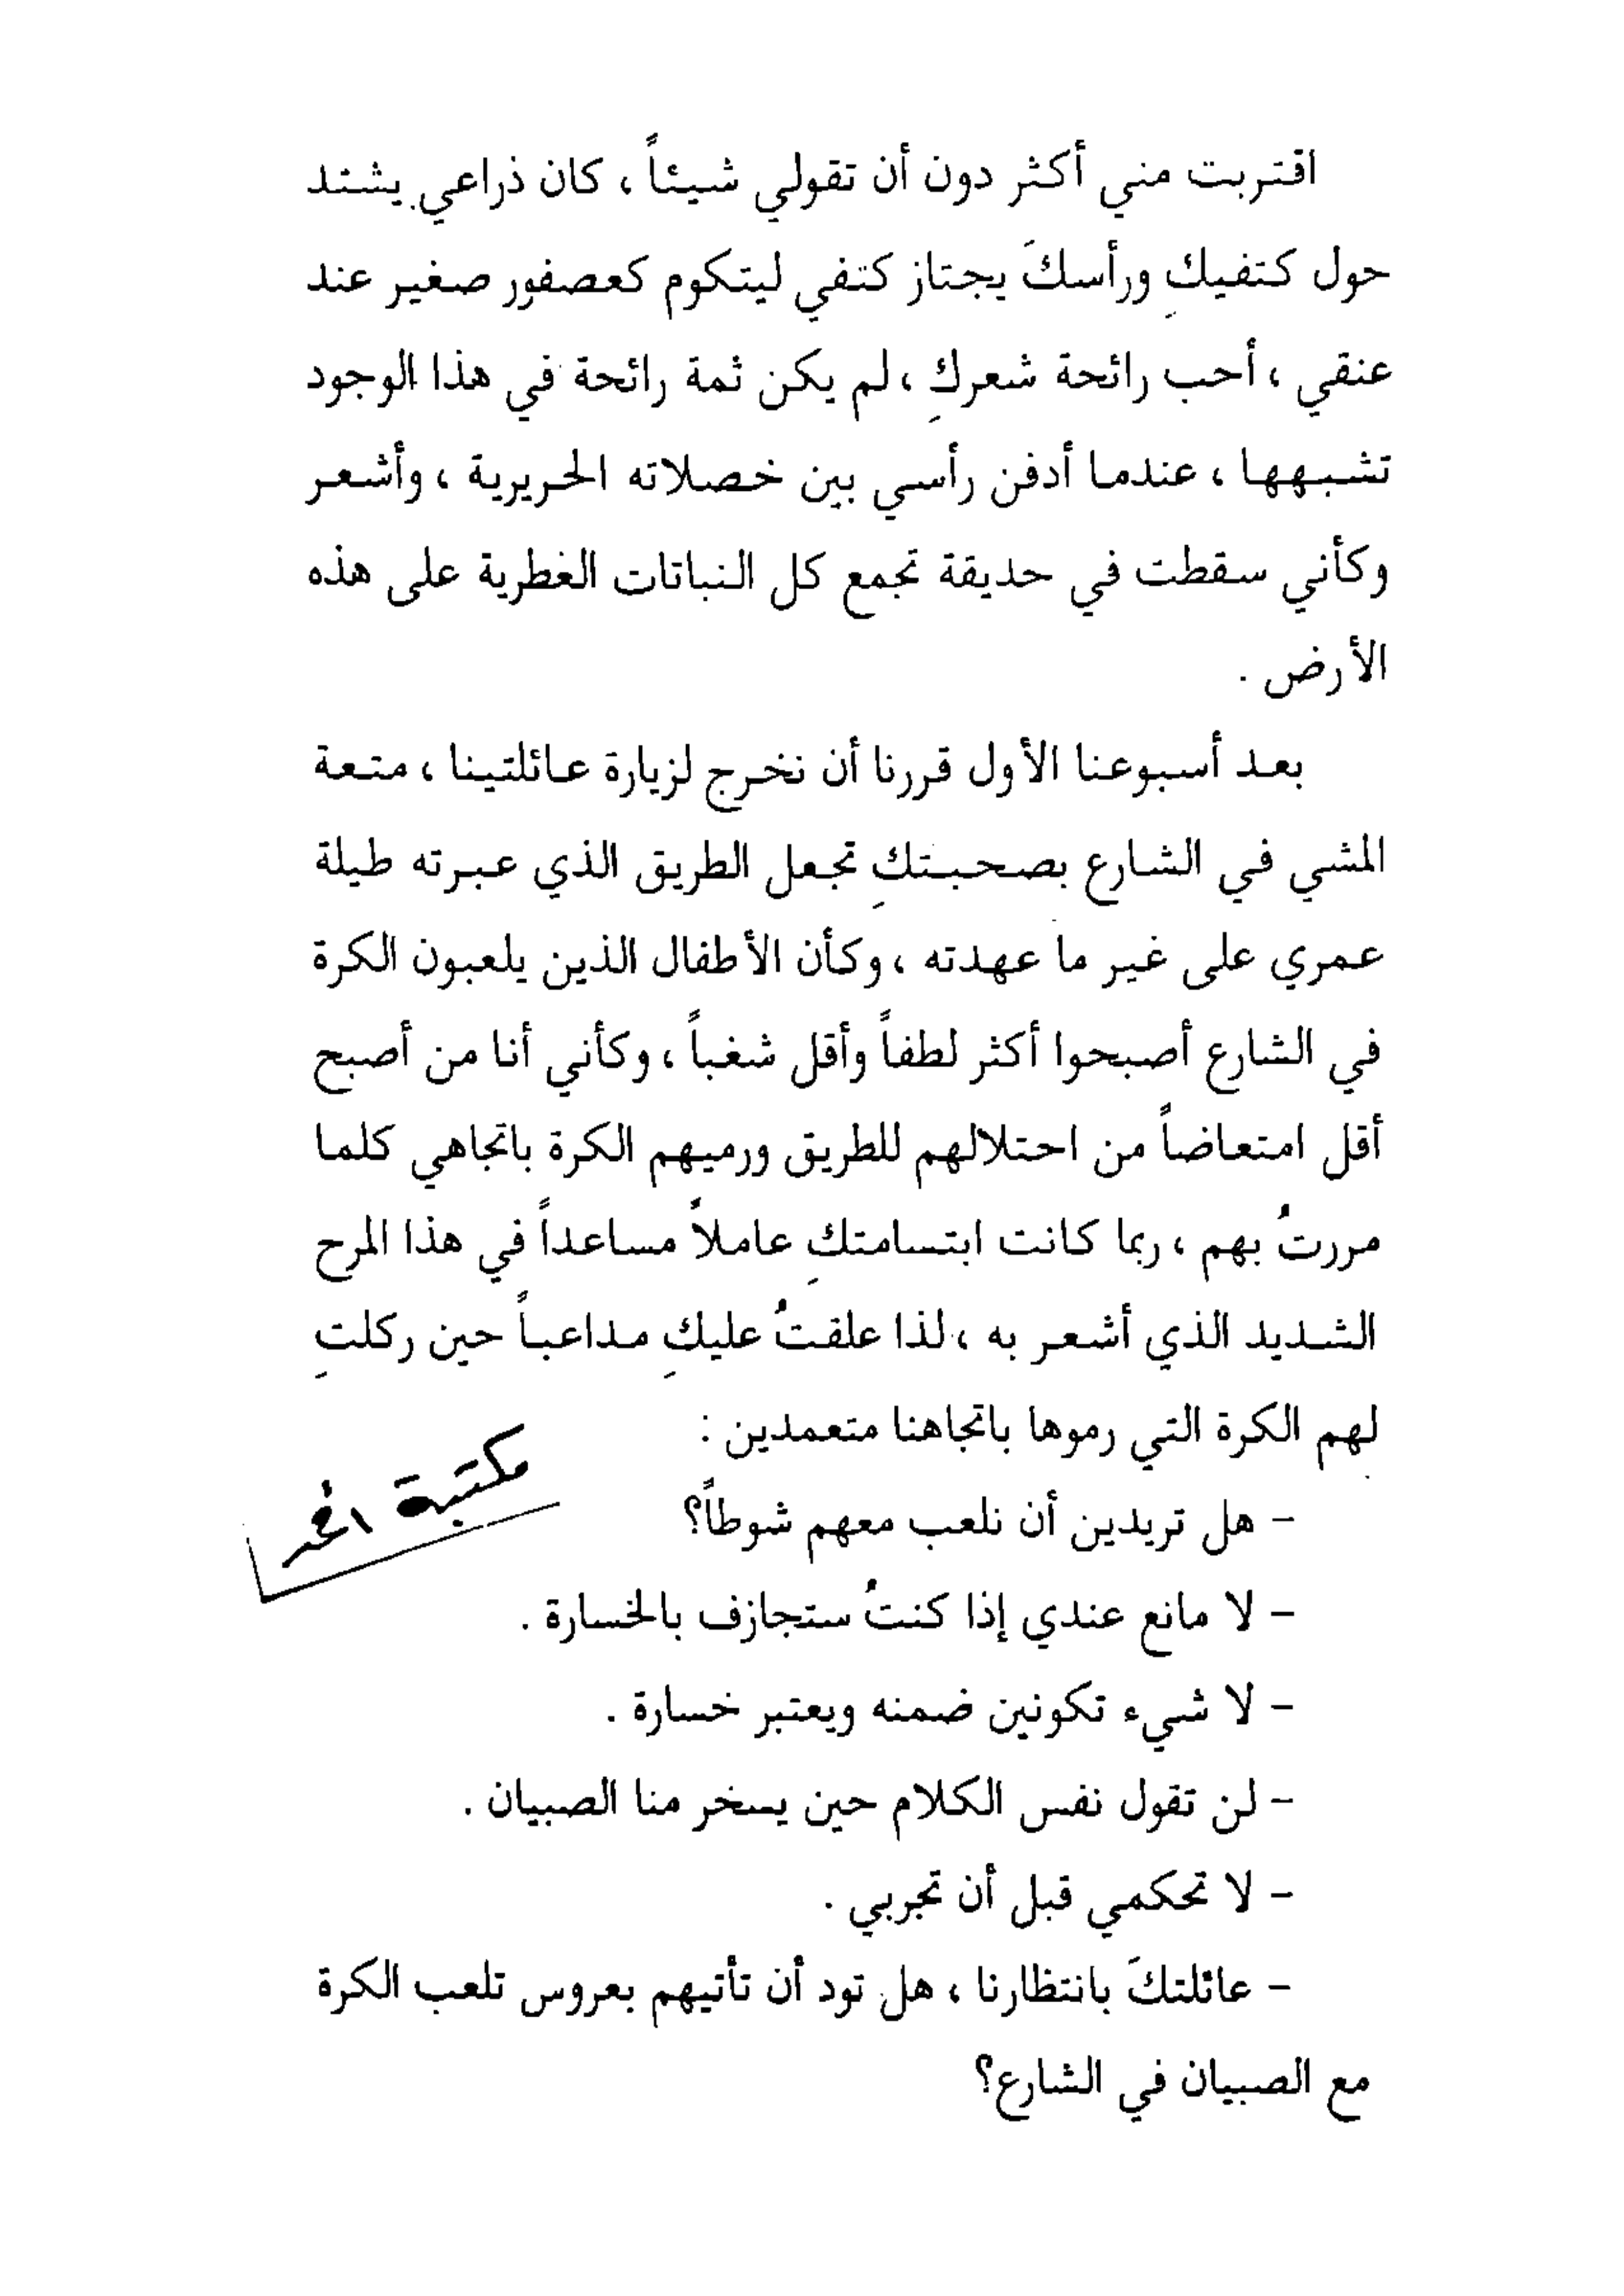 اقتربت مني أكثر دون أن تقولي شيئاً ، كان ذراعي يشتد
حول كتفيكِ ورأسكَ يجتاز كتفي ليتكوم كعصفور صغير عند
عنقي ، أحب رائحة شعركِ ، لم يكن ثمة رائحة في هذا الوجود
تشبهها ، عندما أدفن رأسي بين خصلاته الحريرية ، وأشعر
وكأني سقطت في حديقة تجمع كل النباتات العطرية على هذه
الأرض .
بعد أسبوعنا الأول قررنا أن نخرج لزيارة عائلتينا ، متعة
المشي في الشارع بصحبتكِ تجعل الطريق الذي عبرته طيلة
عمري على غير ما عهدته ، وكأن الأطفال الذين يلعبون الكرة
في الشارع أصبحوا أكثر لطفاً وأقل شغباً ، وكأني أنا من أصبح
أقل امتعاضاً من احتلالهم للطريق ورميهم الكرة باتجاهي كلما
مررتُ بهم ، ربما كانت ابتسامتكِ عاملاً مساعداً في هذا المرح
الشديد الذي أشعر به ، لذا علقتُ عليكِ مداعباً حين ركلتِ
لهم الكرة التي رموها باتجاهنا متعمدين :
مكتبة
- هل تريدين أن نلعب معهم شوطاً؟
- لا مانع عندي إذا كنتُ ستجازف بالخسارة .
- لا شيء تكونين ضمنه ويعتبر خسارة .
- لن تقول نفس الكلام حين يسخر منا الصبيان .
- لا تحكمي قبل أن تجربي .
- عائلتكَ بانتظارنا ، هل تود أن تأتيهم بعروس تلعب الكرة
مع الصبيان في الشارع؟